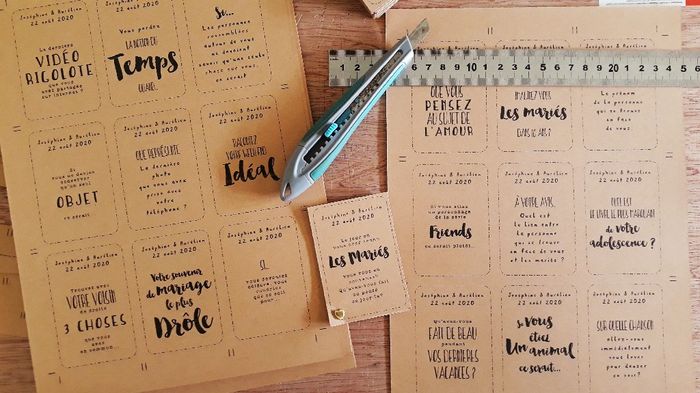 Joséphine & Aurélien
22 août 2020
La dernière
VIDÉO
RIGOLOTE
que vous
avez partagée
sur internet ?
Joséphine & Aurélien
22 août 2020
Vous perdez
LA NOTION DU
Temps
QUAND...
Joséphine & Aurélien
22 août 2020
Si...
les personnes
rassemblées
autour de vous
ne devaient
savoir qu'une seule
chose sur vous,
ce serait
Joséphine & Aurélien
22 août 2020
OBJET
ce serait
Joséphine & Aurélien
22 août 2020
QUE REPRÉSENTE
la dernière
photo
que vous avez
prise avec
votre
téléphone ?
Joséphine & Aurélien
22 août 2020
RACONTEZ
VOTRE WEEK-END
Idéal
Joséphine & Aurélien
22 août 2020
Trouvez avec
VOTRE VOISIN
de droite
3 CHOSES
que vous
avez
en commun...
Joséphine & Aurélien
22 août 2020
Votre souvenir
de mariage
le plus
DRÔLE
Joséphine & Aurélien
22 août 2020
SI...
Joséphine & Aurélien
22 août 2020
Le jour où
vous avez connu
Les Mariés
QUE VOUS
PENSEZ
AU SUJET DE
L'AMOUR
IMAGINEZ-VOUS
Les mariés
DANS 10 ANS ?
Le prénom
de la personne
qui se trouve
en face
de vous.
Joséphine & Aurélien
22 août 2020
Si vous étiez
un personnage
de la série
Friends
ce serait plutôt...
Joséphine & Aurélien
22 août 2020
À VOTRE AVIS,
Quel est
le lien entre
la personne
qui se trouve
en face de vous
et les mariés ?
Joséphine & Aurélien
22 août 2020
QUEL EST
LE LIVRE LE PLUS MARQUANT
de votre
adolescence ?
Joséphine & Aurélien
22 août 2020
Qu'avez-vous
FAIT DE BEAU
pendant
VOS DERNIÈRES
VACANCES ?
Joséphine & Aurélien
22 août 2020
Si Vous
étiez
Un animal
ce serait...
Joséphine & Aurélien
22 août 2020
SUR QUELLE CHANSON
allez-vous
immédiatement
vous lever
pour danser
ce soir ?